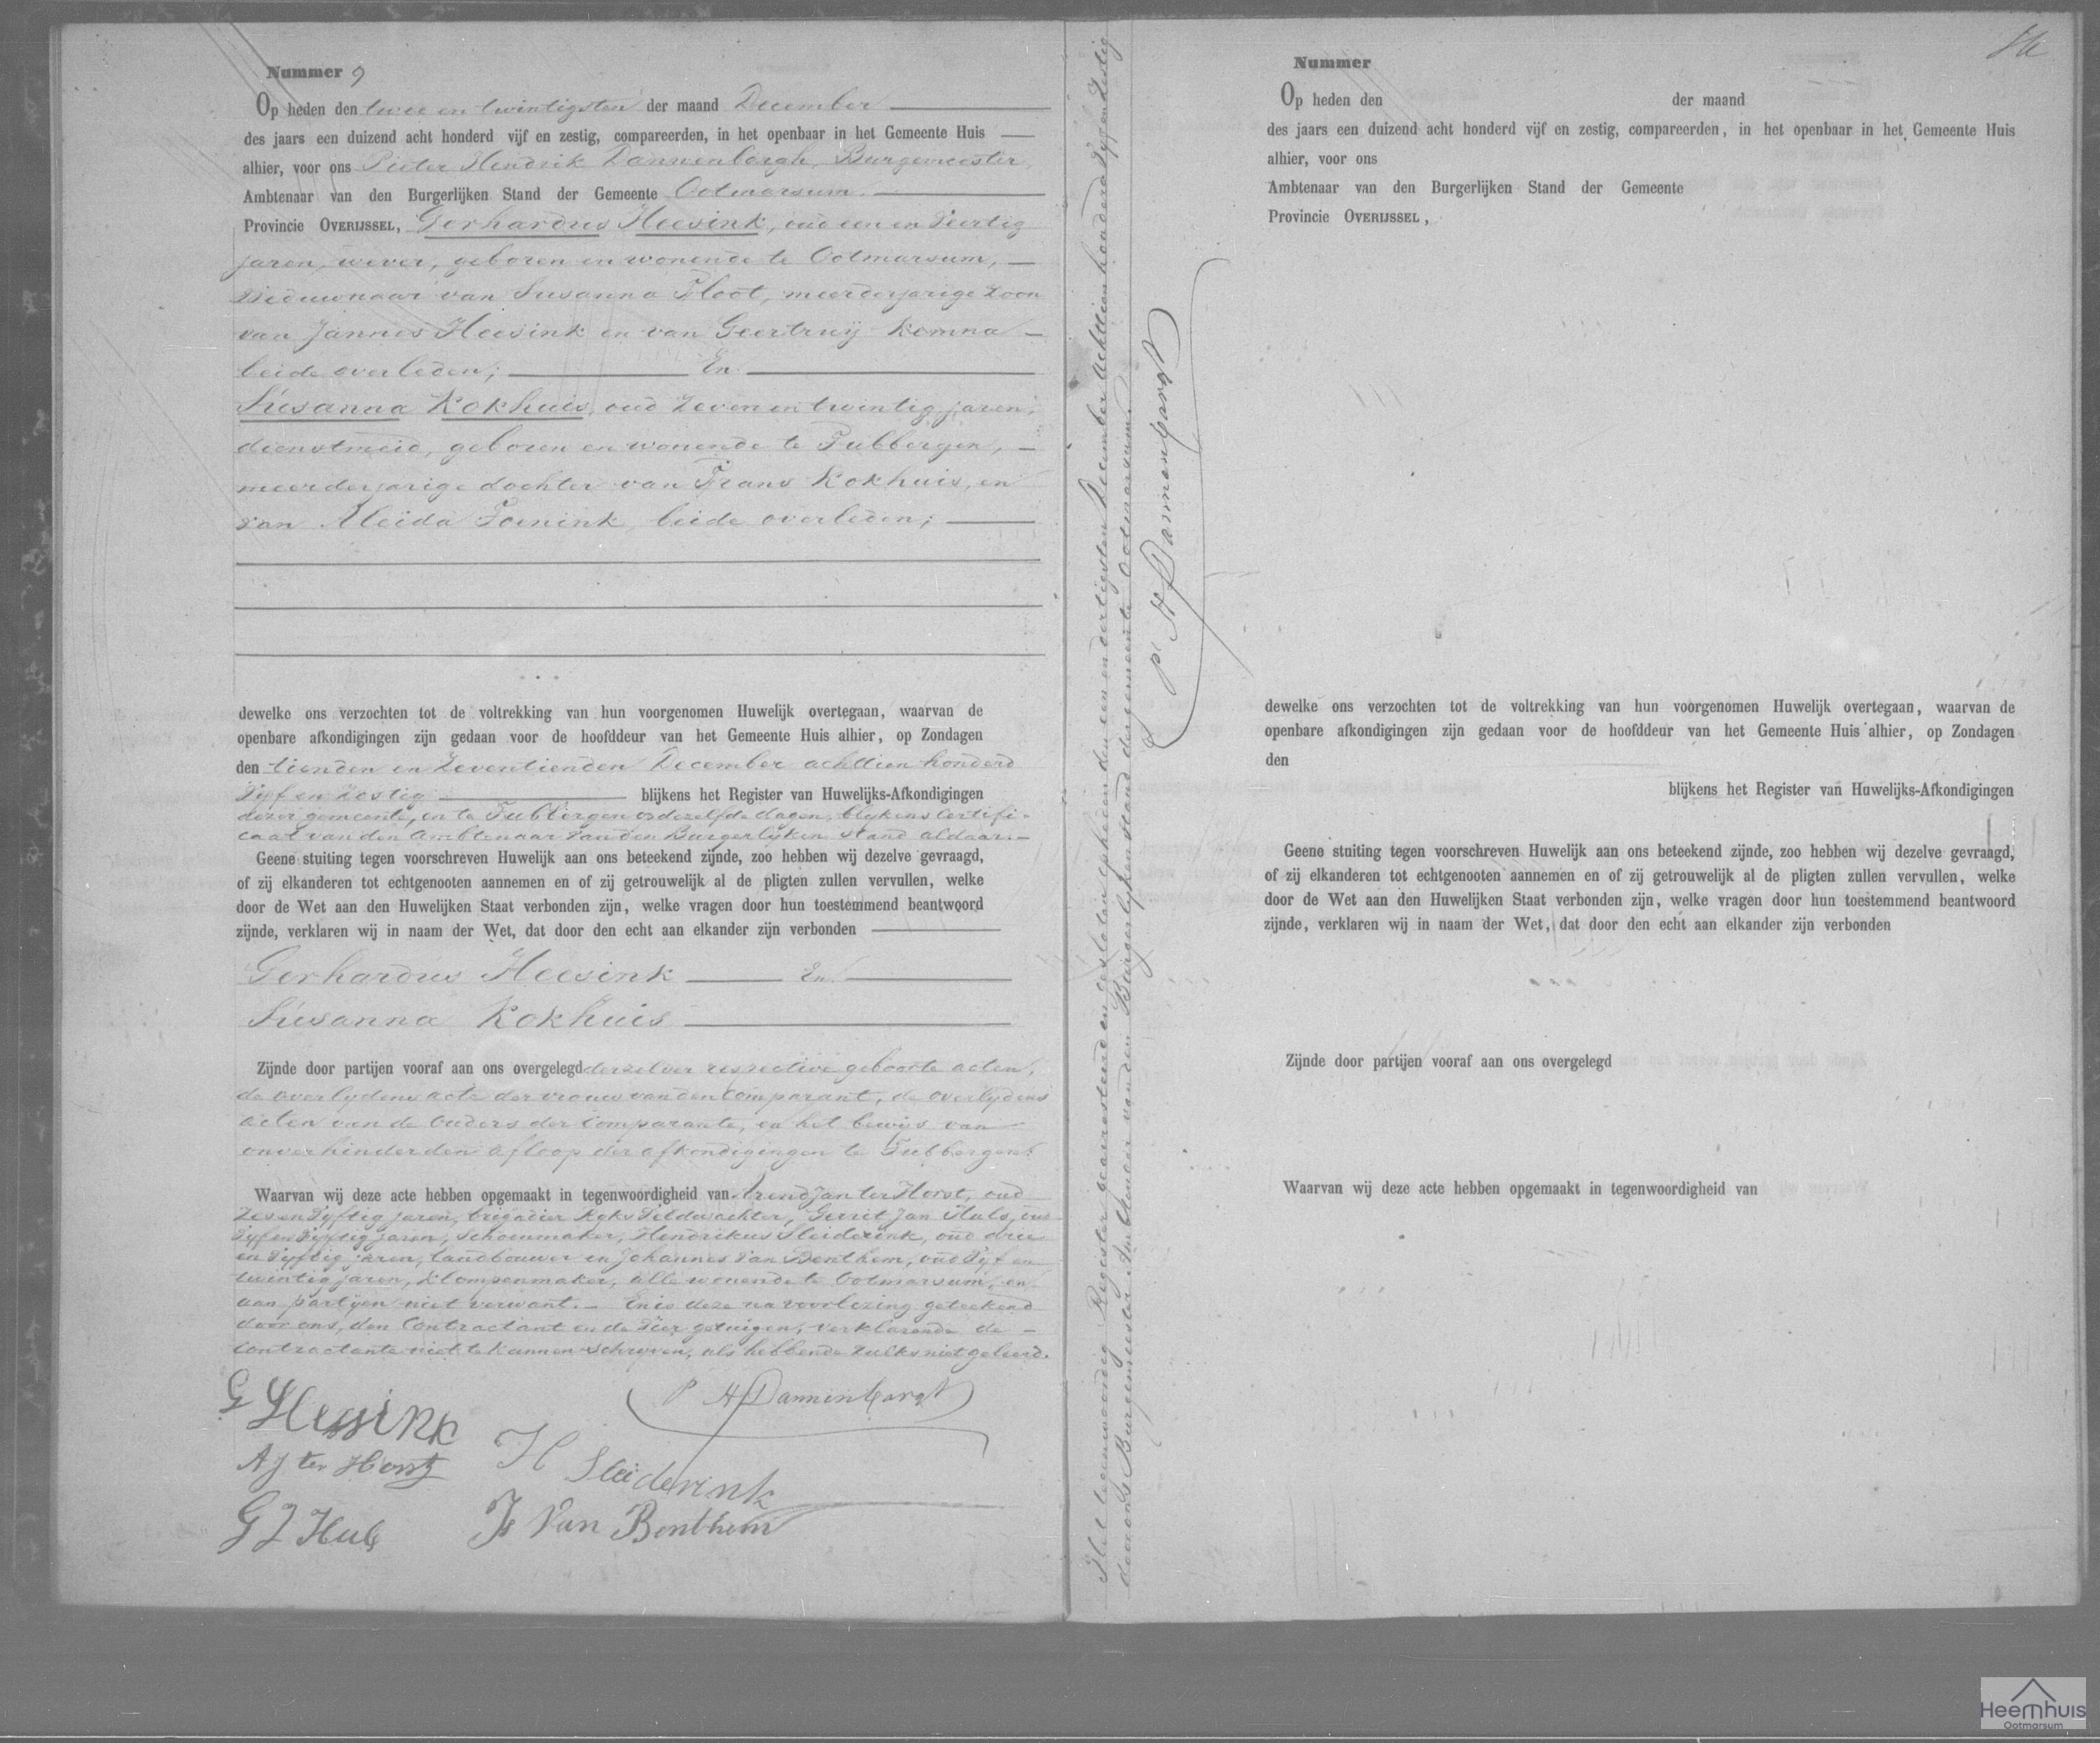 Nummer 9
Op heden den twee en twintigsten der maand December
des jaars een duizend acht honderd vijf en zestig, compareerden, in het openbaar in het Gemeente Huis
alhier, voor ons Pieter Hendrik Dannenbargh, Burgemeester,
Ambtenaar van den Burgerlijken Stand der Gemeente Ootmarsum.
Provincie OVERIJSSEL, Gerhardus Heesink, oud een en veertig
jaren, wever, geboren en wonende te Ootmarsum,
weduwnaar van Susanna Floot, meerderjarige zoon
van Jannes Heesink en van Geertruij Kemna
beide overleden; En
Susanna Kokhuis, oud zeven en twintig jaren,
dienstmeid, geboren en wonende te Tubbergen,
meerderjarige dochter van Frans Kokhuis, en
van Aleida Foenink, beide overleden;
dewelke ons verzochten tot de voltrekking van hun voorgenomen Huwelijk overtegaan, waarvan de
openbare afkondigingen zijn gedaan voor de hoofddeur van het Gemeente Huis alhier, op Zondagen
den tienden en zeventienden December achttien honderd
vijf en zestig blijkens het Register van Huwelijks-Afkondigingen
dezer gemeente, en te Tubbergen opdezelfde dagen, blijkens certifi-
caat van den Ambtenaar van den Burgerlijken stand aldaar.
Geene stuiting tegen voorschreven Huwelijk aan ons beteekend zijnde, zoo hebben wij dezelve gevraagd,
of zij elkanderen tot echtgenooten aannemen en of zij getrouwelijk al de pligten zullen vervullen, welke
door de Wet aan den Huwelijken Staat verbonden zijn, welke vragen door hun toestemmend beantwoord
zijnde, verklaren wij in naam der Wet, dat door den echt aan elkander zijn verbonden
Gerhardus Heesink En
Susanna Kokhuis
Zijnde door partijen vooraf aan ons overgelegd derzelver respective geboorte acten,
de overlydens acte der vrouw van den Comparant, de overlydens
acten van de ouders der Comparante, en het bewijs van
onverhinderden afloop der afkondigingen te Tubbergen.
Waarvan wij deze acte hebben opgemaakt in tegenwoordigheid van Arend Jan ter Horst, oud
zes en vyftig jaren, brigadier Ryks veldwachter, Gerrit Jan Huls, oud
vyf en vyftig jaren, schoenmaker, Hendrikus Sleiderink, oud drie
en vyftig jaren, landbouwer en Johannes van Benthem, oud vyf en
twintig jaren, klompenmaker, alle wonende te Ootmarsum, en
aan partijen niet verwant. En is deze na voorlezing geteekend
door ons, den Contractant en de vier getuigen, verklarende de
Contractante niet te kunnen schryven, als hebbende zulks niet geleerd.
G Hessink
P H Dannenbargh
A J ter Horst
H Sleiderink
G J Huls
Js Van Benthem
Het tegenwoordig Register geariresteerd en gesloten op heden den een en dertigsten December achttien honderd vyf en zestig
door ons Burgemeester Ambtenaar van den Burgerlyken stand der gemeente Ootmarsum
P H Dannenbargh
Nummer
Op heden den der maand
des jaars een duizend acht honderd vijf en zestig, compareerden, in het openbaar in het Gemeente Huis
alhier, voor ons
Ambtenaar van den Burgerlijken Stand der Gemeente
Provincie OVERIJSSEL,
dewelke ons verzochten tot de voltrekking van hun voorgenomen Huwelijk overtegaan, waarvan de
openbare afkondigingen zijn gedaan voor de hoofddeur van het Gemeente Huis alhier, op Zondagen
den
blijkens het Register van Huwelijks-Afkondigingen
Geene stuiting tegen voorschreven Huwelijk aan ons beteekend zijnde, zoo hebben wij dezelve gevraagd,
of zij elkanderen tot echtgenooten aannemen en of zij getrouwelijk al de pligten zullen vervullen, welke
door de Wet aan den Huwelijken Staat verbonden zijn, welke vragen door hun toestemmend beantwoord
zijnde, verklaren wij in naam der Wet, dat door den echt aan elkander zijn verbonden
Zijnde door partijen vooraf aan ons overgelegd
Waarvan wij deze acte hebben opgemaakt in tegenwoordigheid van
Heemhuis
Ootmarsum